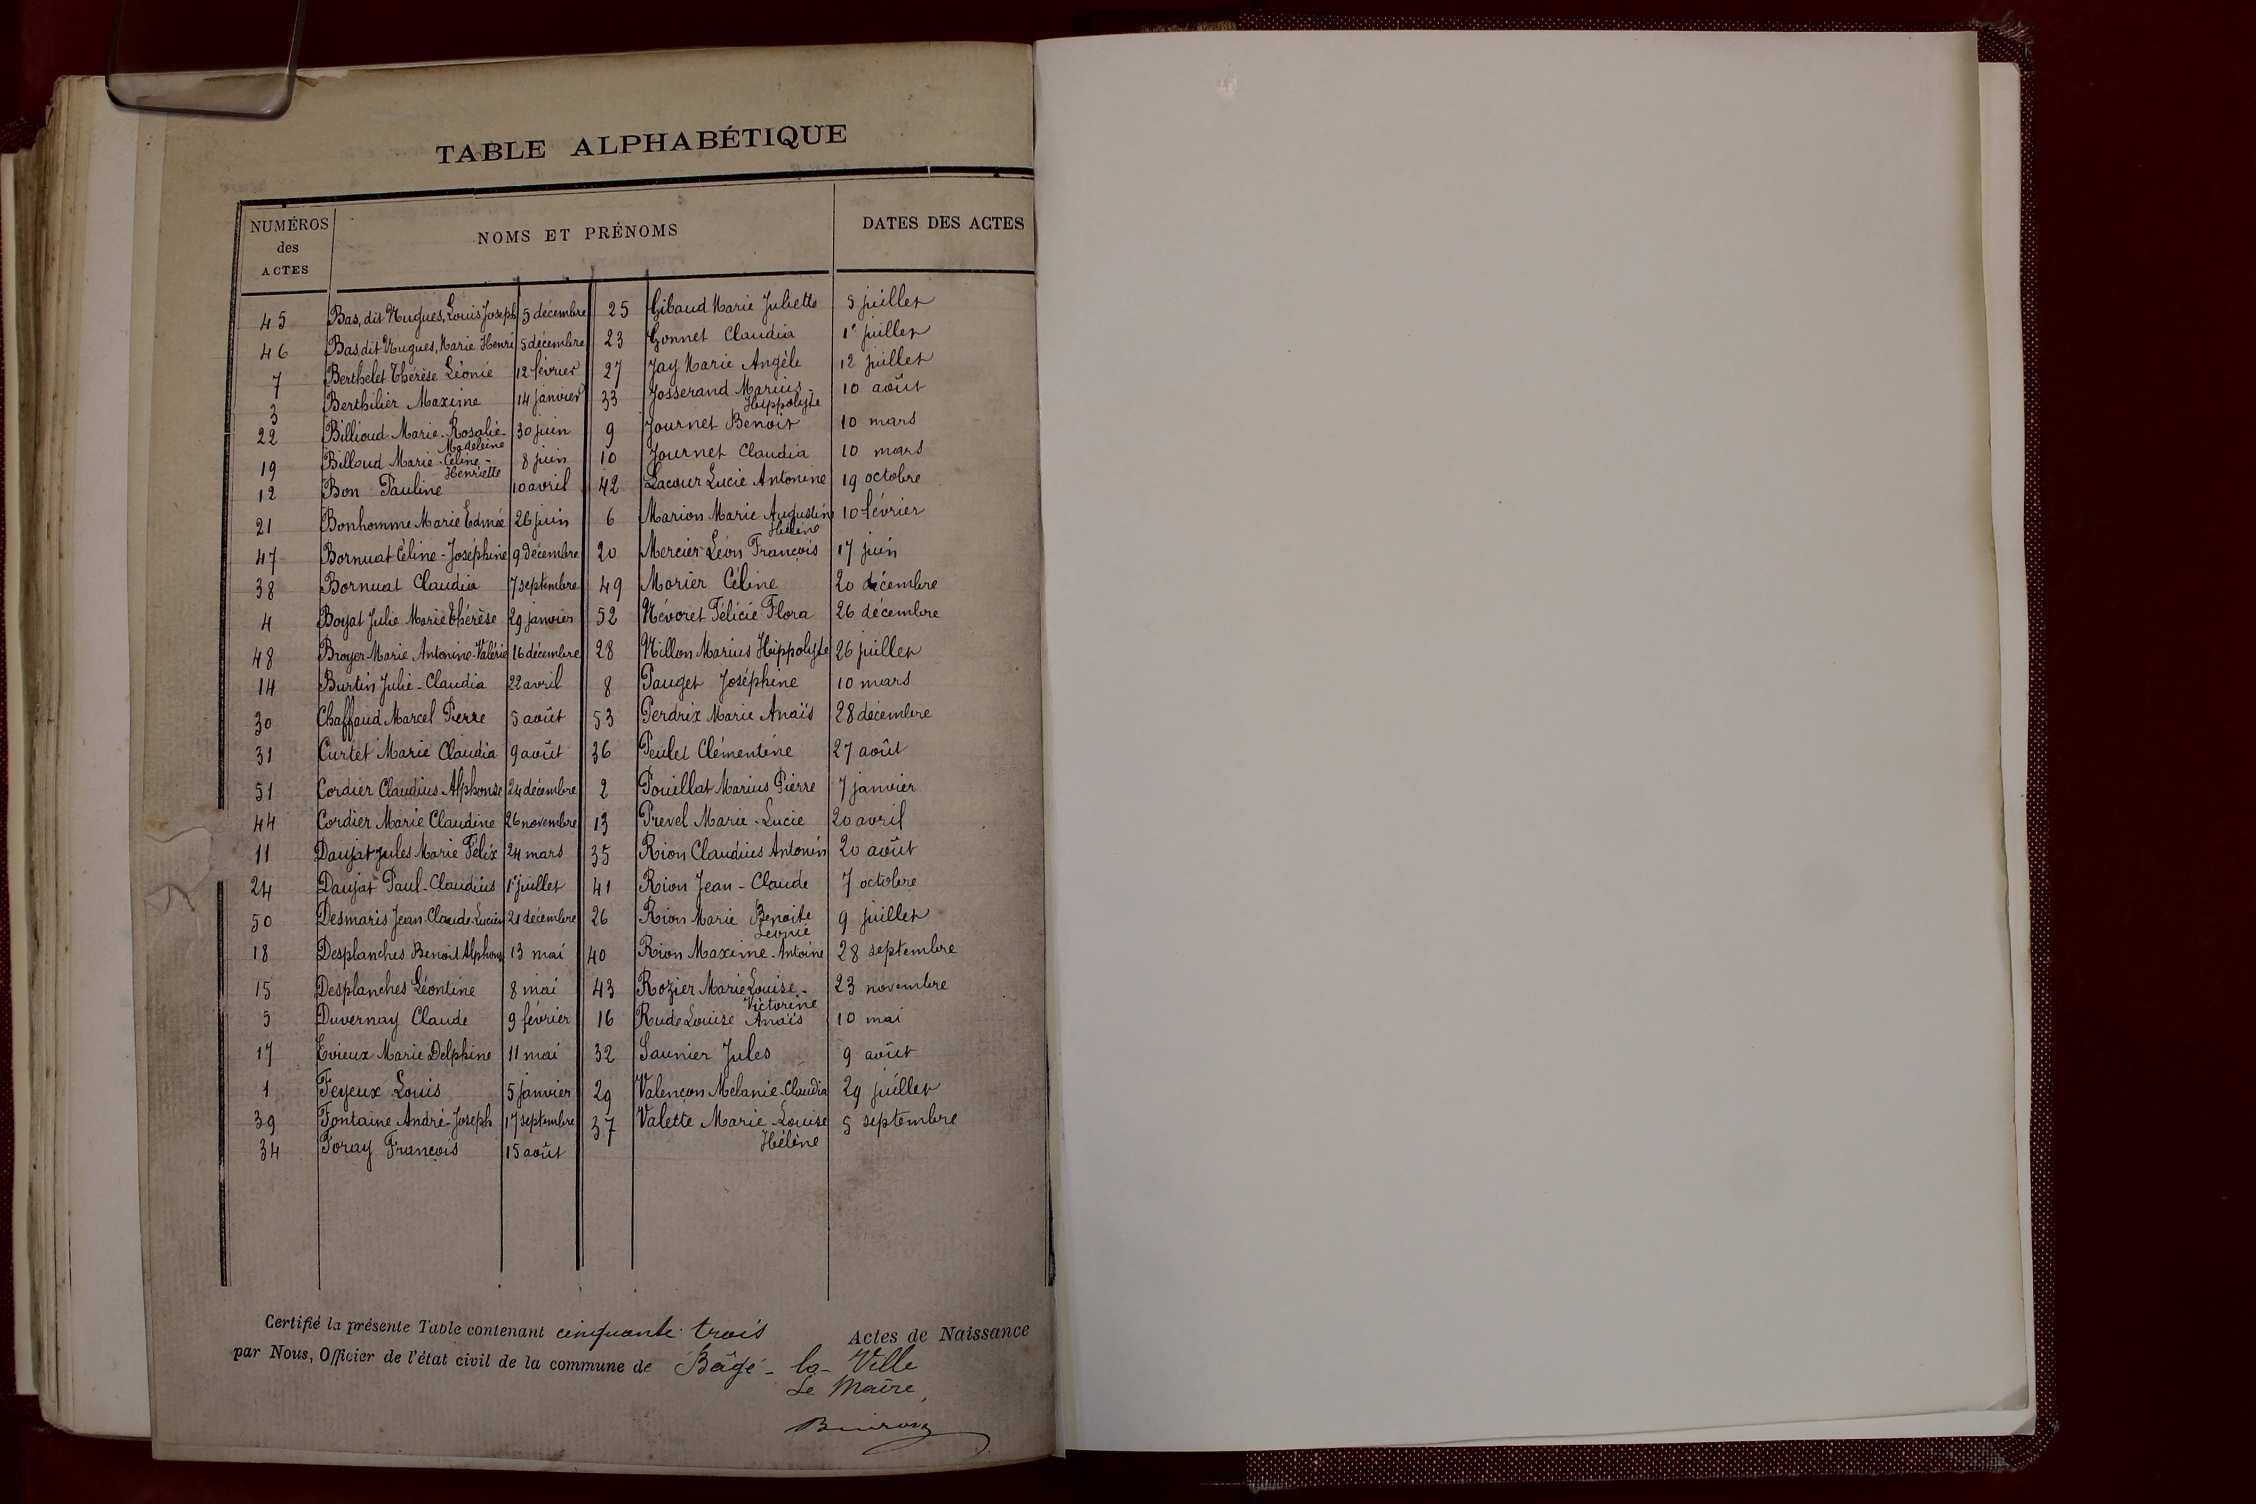 TABLE ALPHABÉTIQUE
NUMÉROS des ACTES
NOMS ET PRÉNOMS
DATES DES ACTES
45 Bas, dit Nugues, Louis Joseph 5 décembre
46 Bas dit Nugues, Marie Henri 5 décembre
7 Berthelet Thérèse Léonie 12 février
3 Berthilier Maxime 14 janvier
22 Billioud Marie-Rosalie-Madeleine 30 juin
19 Billoud Marie-Céline-Henriette 8 juin
12 Bon Pauline 10 avril
21 Bonhomme Marie Edmée 26 juin
47 Bornuat Céline-Joséphine 9 décembre
38 Bornuat Claudia 7 septembre
4 Boyat Julie Marie Thérèse 29 janvier
48 Broyer Marie Antonine-Valérie 16 décembre
14 Burtin Julie-Claudia 22 avril
30 Chaffaud Marcel Pierre 5 août
31 Curtet Marie Claudia 9 août
51 Cordier Claudius Alphonse 24 décembre
44 Cordier Marie Claudine 26 novembre
11 Daujat Jules Marie Félix 24 mars
24 Daujat Paul-Claudius 1er juillet
50 Desmaris Jean-Claude-Lucien 21 décembre
18 Desplanches Benoit Alphonse 13 mai
15 Desplanches Léontine 8 mai
5 Duvernay Claude 9 février
17 Evieux Marie Delphine 11 mai
1 Feyeux Louis 5 janvier
39 Fontaine André-Joseph 17 septembre
34 Foray François 15 août
25 Gibaud Marie Juliette 5 juillet
23 Gonnet Claudia 1er juillet
27 Jay Marie Angèle 12 juillet
33 Josserand Marius-Hippolyte 10 août
9 Journet Benoit 10 mars
10 Journet Claudia 10 mars
42 Lacour Lucie Antonine 19 octobre
6 Marion Marie Augustine Hélène 10 février
20 Mercier Léon François 17 juin
49 Morier Céline 20 décembre
52 Névoret Félicie Flora 26 décembre
28 Nillon Marius Hippolyte 26 juillet
8 Pauget Joséphine 10 mars
53 Perdrix Marie Anaïs 28 décembre
36 Peulet Clémentine 27 août
2 Pouillat Marius Pierre 7 janvier
13 Prevel Marie-Lucie 20 avril
35 Rion Claudius Antonin 20 août
41 Rion Jean-Claude 7 octobre
26 Rion Marie Benoite Léonie 9 juillet
40 Rion Maxime-Antoine 28 septembre
43 Rozier Marie Louise-Victorine 23 novembre
16 Rude Louise Anaïs 10 mai
32 Saunier Jules 9 août
29 Valençon Melanie-Claudia 29 juillet
37 Valette Marie-Louise Hélène 5 septembre
Certifié la présente Table contenant cinquante-trois Actes de Naissance
par Nous, Officier de l'état civil de la commune de Bâgé-la-Ville
Le Maire,